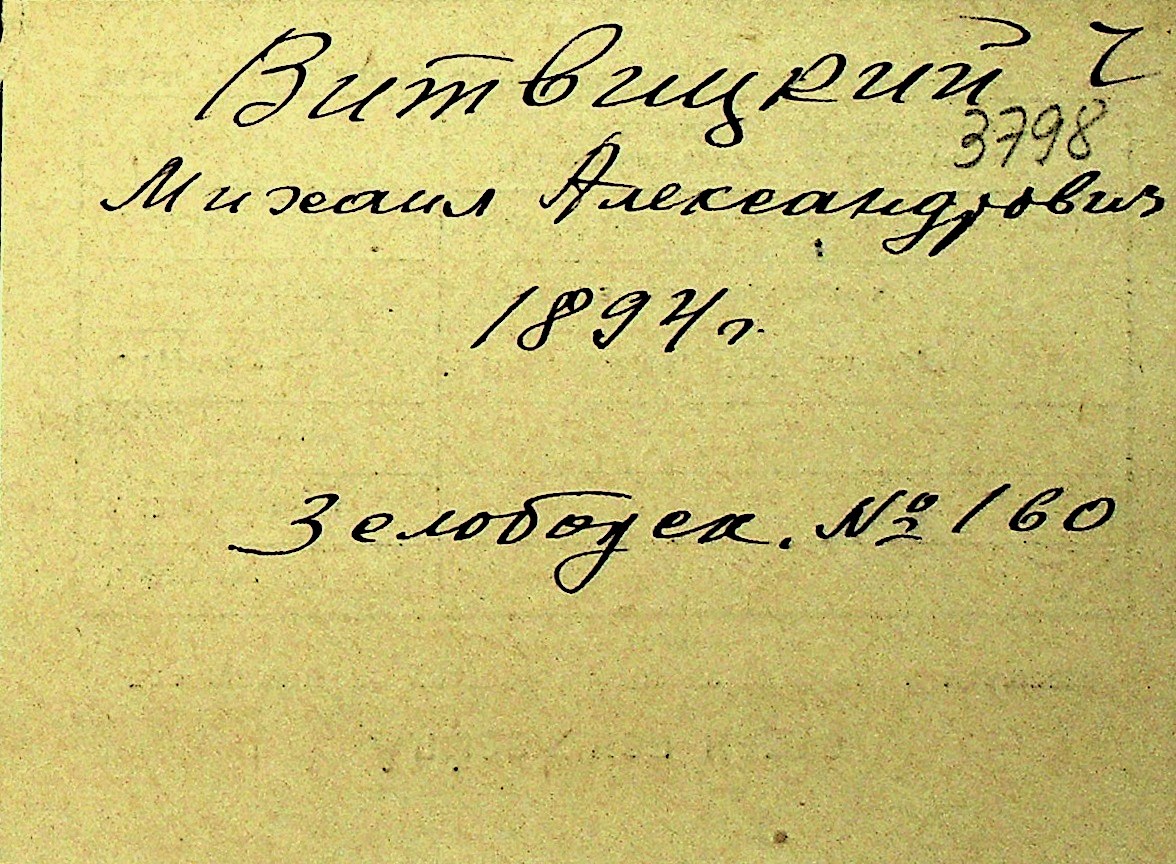 Витвицкий Ч
3798
Михаил Александрович
1894 г.
№ 160